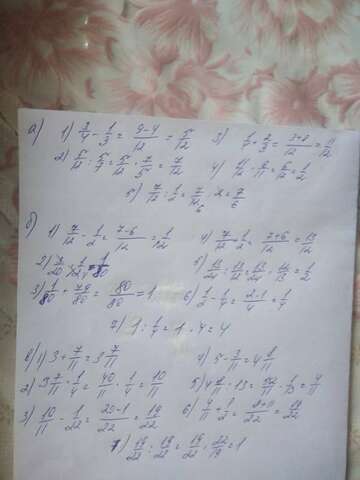 а) 1) 3/4 - 1/3 = 9-4/12 = 5/12 3) 1/4 + 2/3 = 3+8/12 = 11/12
2) 5/12 : 5/7 = 5/12 · 7/5 = 7/12 4) 11/12 · 6/11 = 6/12 = 1/2
5) 7/12 : 1/2 = 7/12 · 2 = 7/6
б) 1) 7/12 - 1/2 = 7-6/12 = 1/12 4) 7/12 + 1/2 = 7+6/12 = 13/12
2) 3/20 · 1/12 = 1/80 5) 13/24 : 13/12 = 13/24 · 12/13 = 1/2
3) 1/80 + 79/80 = 80/80 = 1 6) 1/2 - 1/4 = 2-1/4 = 1/4
7) 1 : 1/4 = 1 · 4 = 4
в) 1) 3 + 7/11 = 3 7/11 4) 5 - 3/11 = 4 8/11
2) 3 7/11 · 1/4 = 40/11 · 1/4 = 10/11 5) 4 8/11 : 13 = 52/11 · 1/13 = 4/11
3) 10/11 - 1/22 = 20-1/22 = 19/22 6) 4/11 + 1/2 = 8+11/22 = 19/22
7) 19/22 : 19/22 = 19/22 · 22/19 = 1